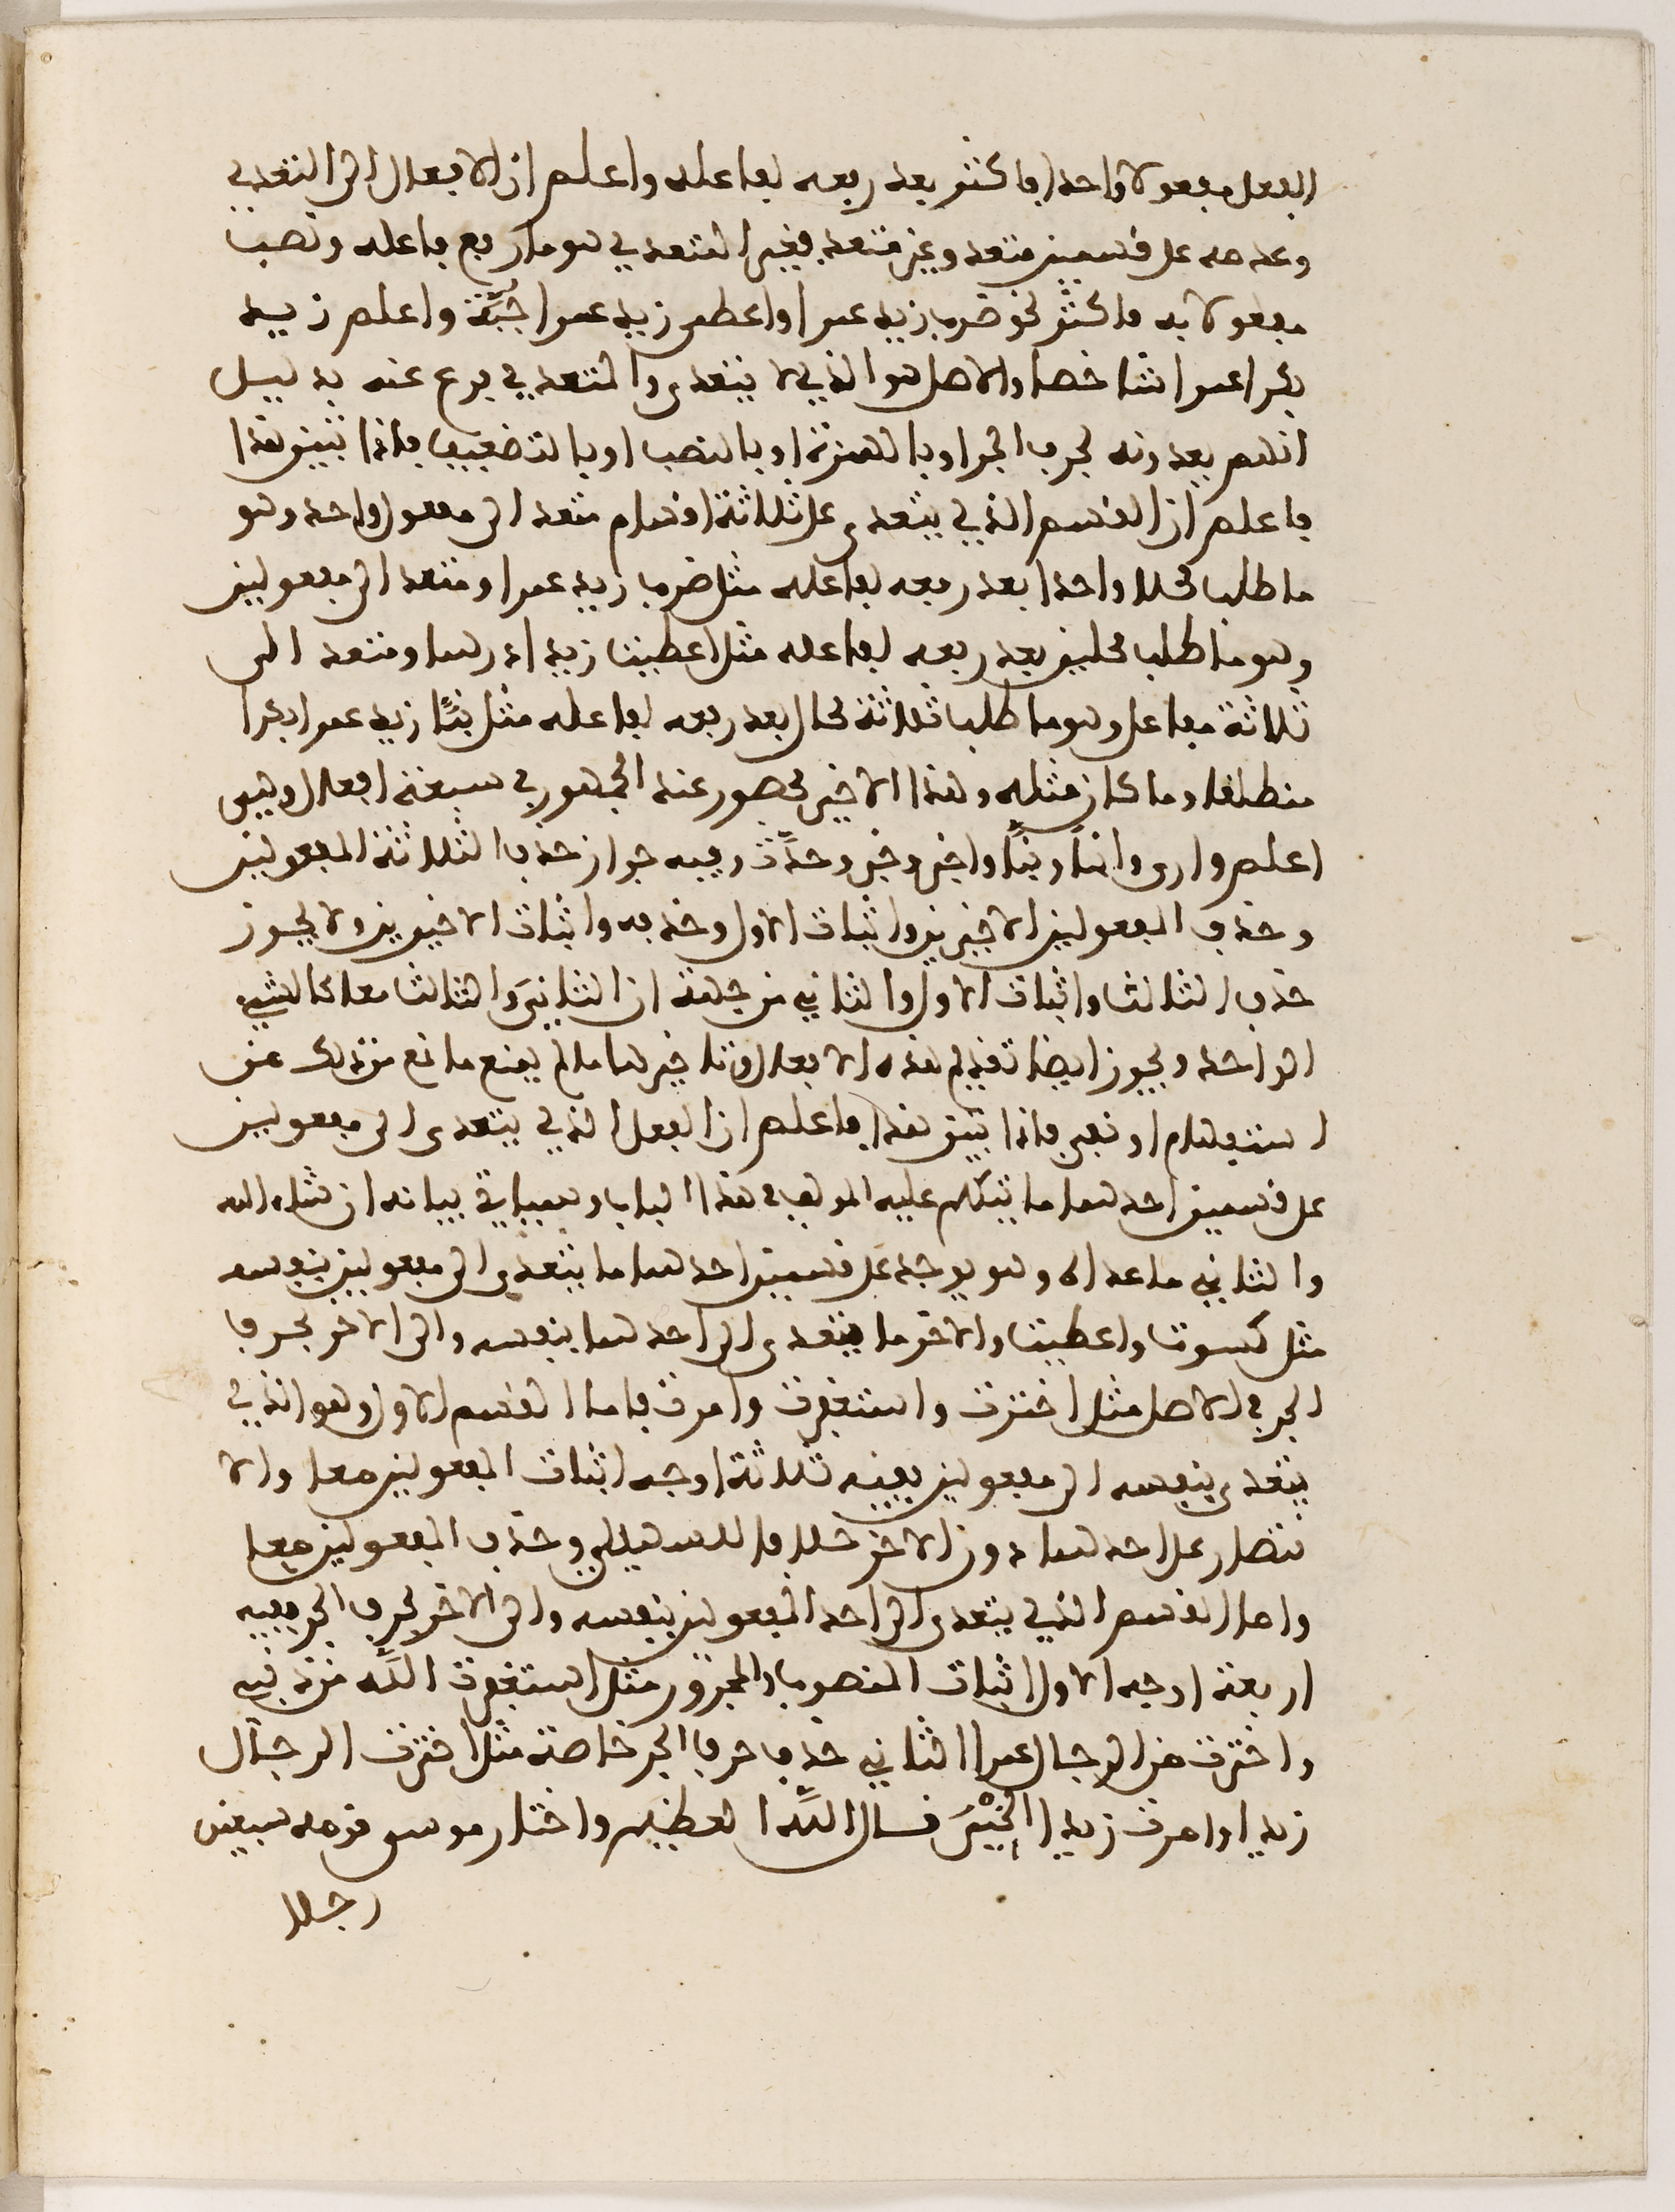 الفعل مفعولا واحدا فاكثر بعد رفعه لفاعله واعلم ان الافعال الى التعدي
وعدمه على قسمين متعد وغير متعد فغير المتعدي هو ما رفع فاعله ونصب
مفعولا به فاكثر نحو ضرب زيد عمرا واعطى زيد عمرا جُبَّة واعلم زيد
بكرا عمرا شاخصا والاصل هو الذي لا يتعدى والمتعدي فرع عنه بدليل
انهم يعدونه بحرف الجر او بالهمزة او بالنصب او بالتضعيف فاذا تبين هذا
فاعلم ان القسم الذي يتعدى على ثلاثة اقسام متعد الى مفعول واحد وهو
ما طلب محلا واحدا بعد رفعه لفاعله مثل ضرب زيد عمرا ومتعد الى مفعولين
وهو ما طلب محلين بعد رفعه لفاعله مثل اعطيت زيدا درهما ومتعد الى
ثلاثة مفاعل وهو ما طلب ثلاثة محال بعد رفعه لفاعله مثل نبَّأ زيد عمرا بكرا
منطلقا وما كان مثله وهذا الاخير محصور عند الجمهور في سبعة افعال وهي
اعلم وارى وانبأ ونبَّأ واخبر وخبر وحدَّث وفيه جواز حذف الثلاثة المفعولين
وحذف المفعولين الاخيرين واثبات الاول وحذفه واثبات الاخيرين ولا يجوز
حذف الثالث واثبات الاول والثاني من جهة ان الثانيَ والثالث معا كالشيء
الواحد ويجوز ايضا تقديم هذه الافعال وتاخيرها ما لم يمنع مانع من ذلك من
استفهام او نفي فاذا تبين هذا فاعلم ان الفعل الذي يتعدى الى مفعولين
على قسمين احدهما ما تكلم عليه المولف في هذا الباب وسياتي بيانه ان شاء الله
والثاني ما عداه وهو يوجد على قسمين احدهما ما يتعدى الى مفعولين بنفسه
مثل كسوت واعطيت والاخر ما يتعدى الى احدهما بنفسه والى الاخر بحرف
الجر في الاصل مثل اخترت واستغفرت وامرت فاما القسم الاول وهو الذي
يتعدى بنفسه الى مفعولين ففيه ثلاثة اوجه اثبات المفعولين معا والا
قتصار على احدهما دون الاخر خلافا للسهيلي وحذف المفعولين معا
واما القسم الذي يتعدى الى احد المفعولين بنفسه والى الاخر بحرف الجر ففيه
اربعة اوجه الاول اثبات المنصوب والمجرور مثل استغفرت اللَّه من ذنبي
واخترت من الرجال عمرا الثاني حذف حرف الجر خاصة مثل اخترت الرجال
زيدا وامرت زيدا الخَيْرَ قال اللَّه العظيم واختار موسى قومه سبعين
رجلا